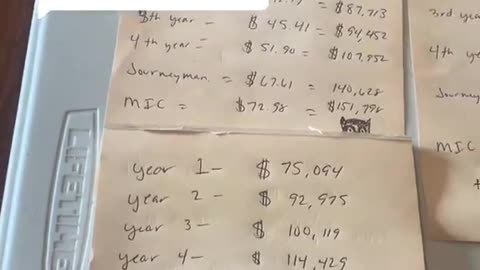 = $87,713
3th year - $45.41 = $94,452
4th year = $51.90 = $107,952
Journeyman = $67.61 = 140,628
MIC = $72.98 = $151,798
year 1- $ 75,094
year 2- $ 92,975
year 3- $ 100,119
year 4- $ 114,429
3rd yea
4th yea
MIC
LIFETIME